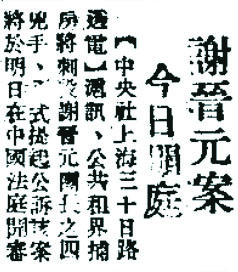 謝晉元案
今日開庭
【中央社上海三十日路
透電】滬訊、公共租界捕
房將刺殺謝晉元團長之四
兇手、正式提起公訴該案
將於明日在中國法庭開審